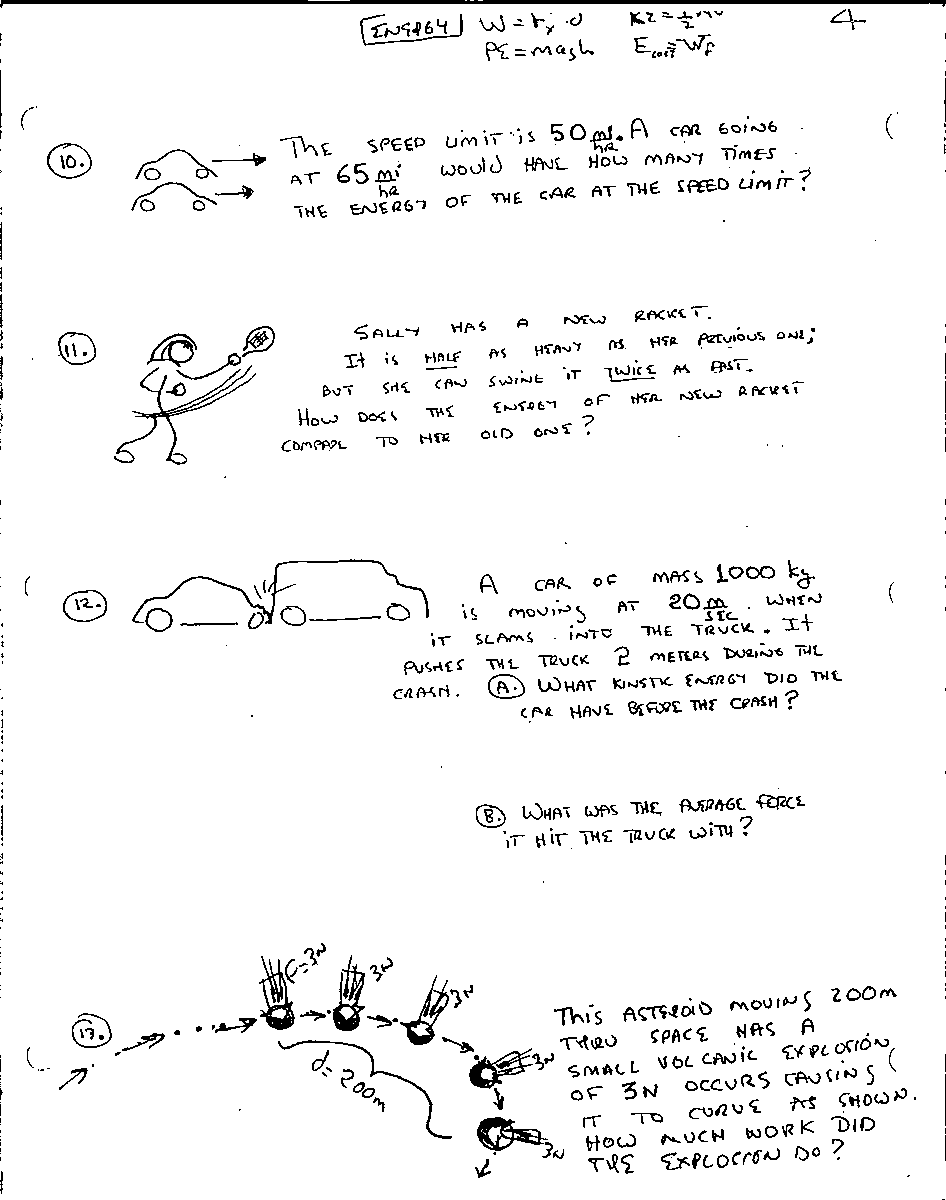 ENERGY W = Fx·d KE = ½mv² 4
PE = magh Ecost = Wf
10. THE SPEED LIMIT IS 50 mi/hr. A CAR GOING
AT 65 mi/hr WOULD HAVE HOW MANY TIMES
THE ENERGY OF THE CAR AT THE SPEED LIMIT?
11. SALLY HAS A NEW RACKET.
IT IS HALF AS HEAVY AS HER PREVIOUS ONE;
BUT SHE CAN SWING IT TWICE AS FAST.
HOW DOES THE ENERGY OF HER NEW RACKET
COMPARE TO HER OLD ONE?
12. A CAR OF MASS 1000 kg
IS MOVING AT 20 m/SEC WHEN
IT SLAMS INTO THE TRUCK. IT
PUSHES THE TRUCK 2 METERS DURING THE
CRASH. A. WHAT KINETIC ENERGY DID THE
CAR HAVE BEFORE THE CRASH?
B. WHAT WAS THE AVERAGE FORCE
IT HIT THE TRUCK WITH?
13. F=3N 3N 3N
3N
3N
d=200m
THIS ASTEROID MOVING 200m
THRU SPACE HAS A
SMALL VOLCANIC EXPLOSION
OF 3N OCCURS CAUSING
IT TO CURVE AS SHOWN.
HOW MUCH WORK DID
THE EXPLOSION DO?